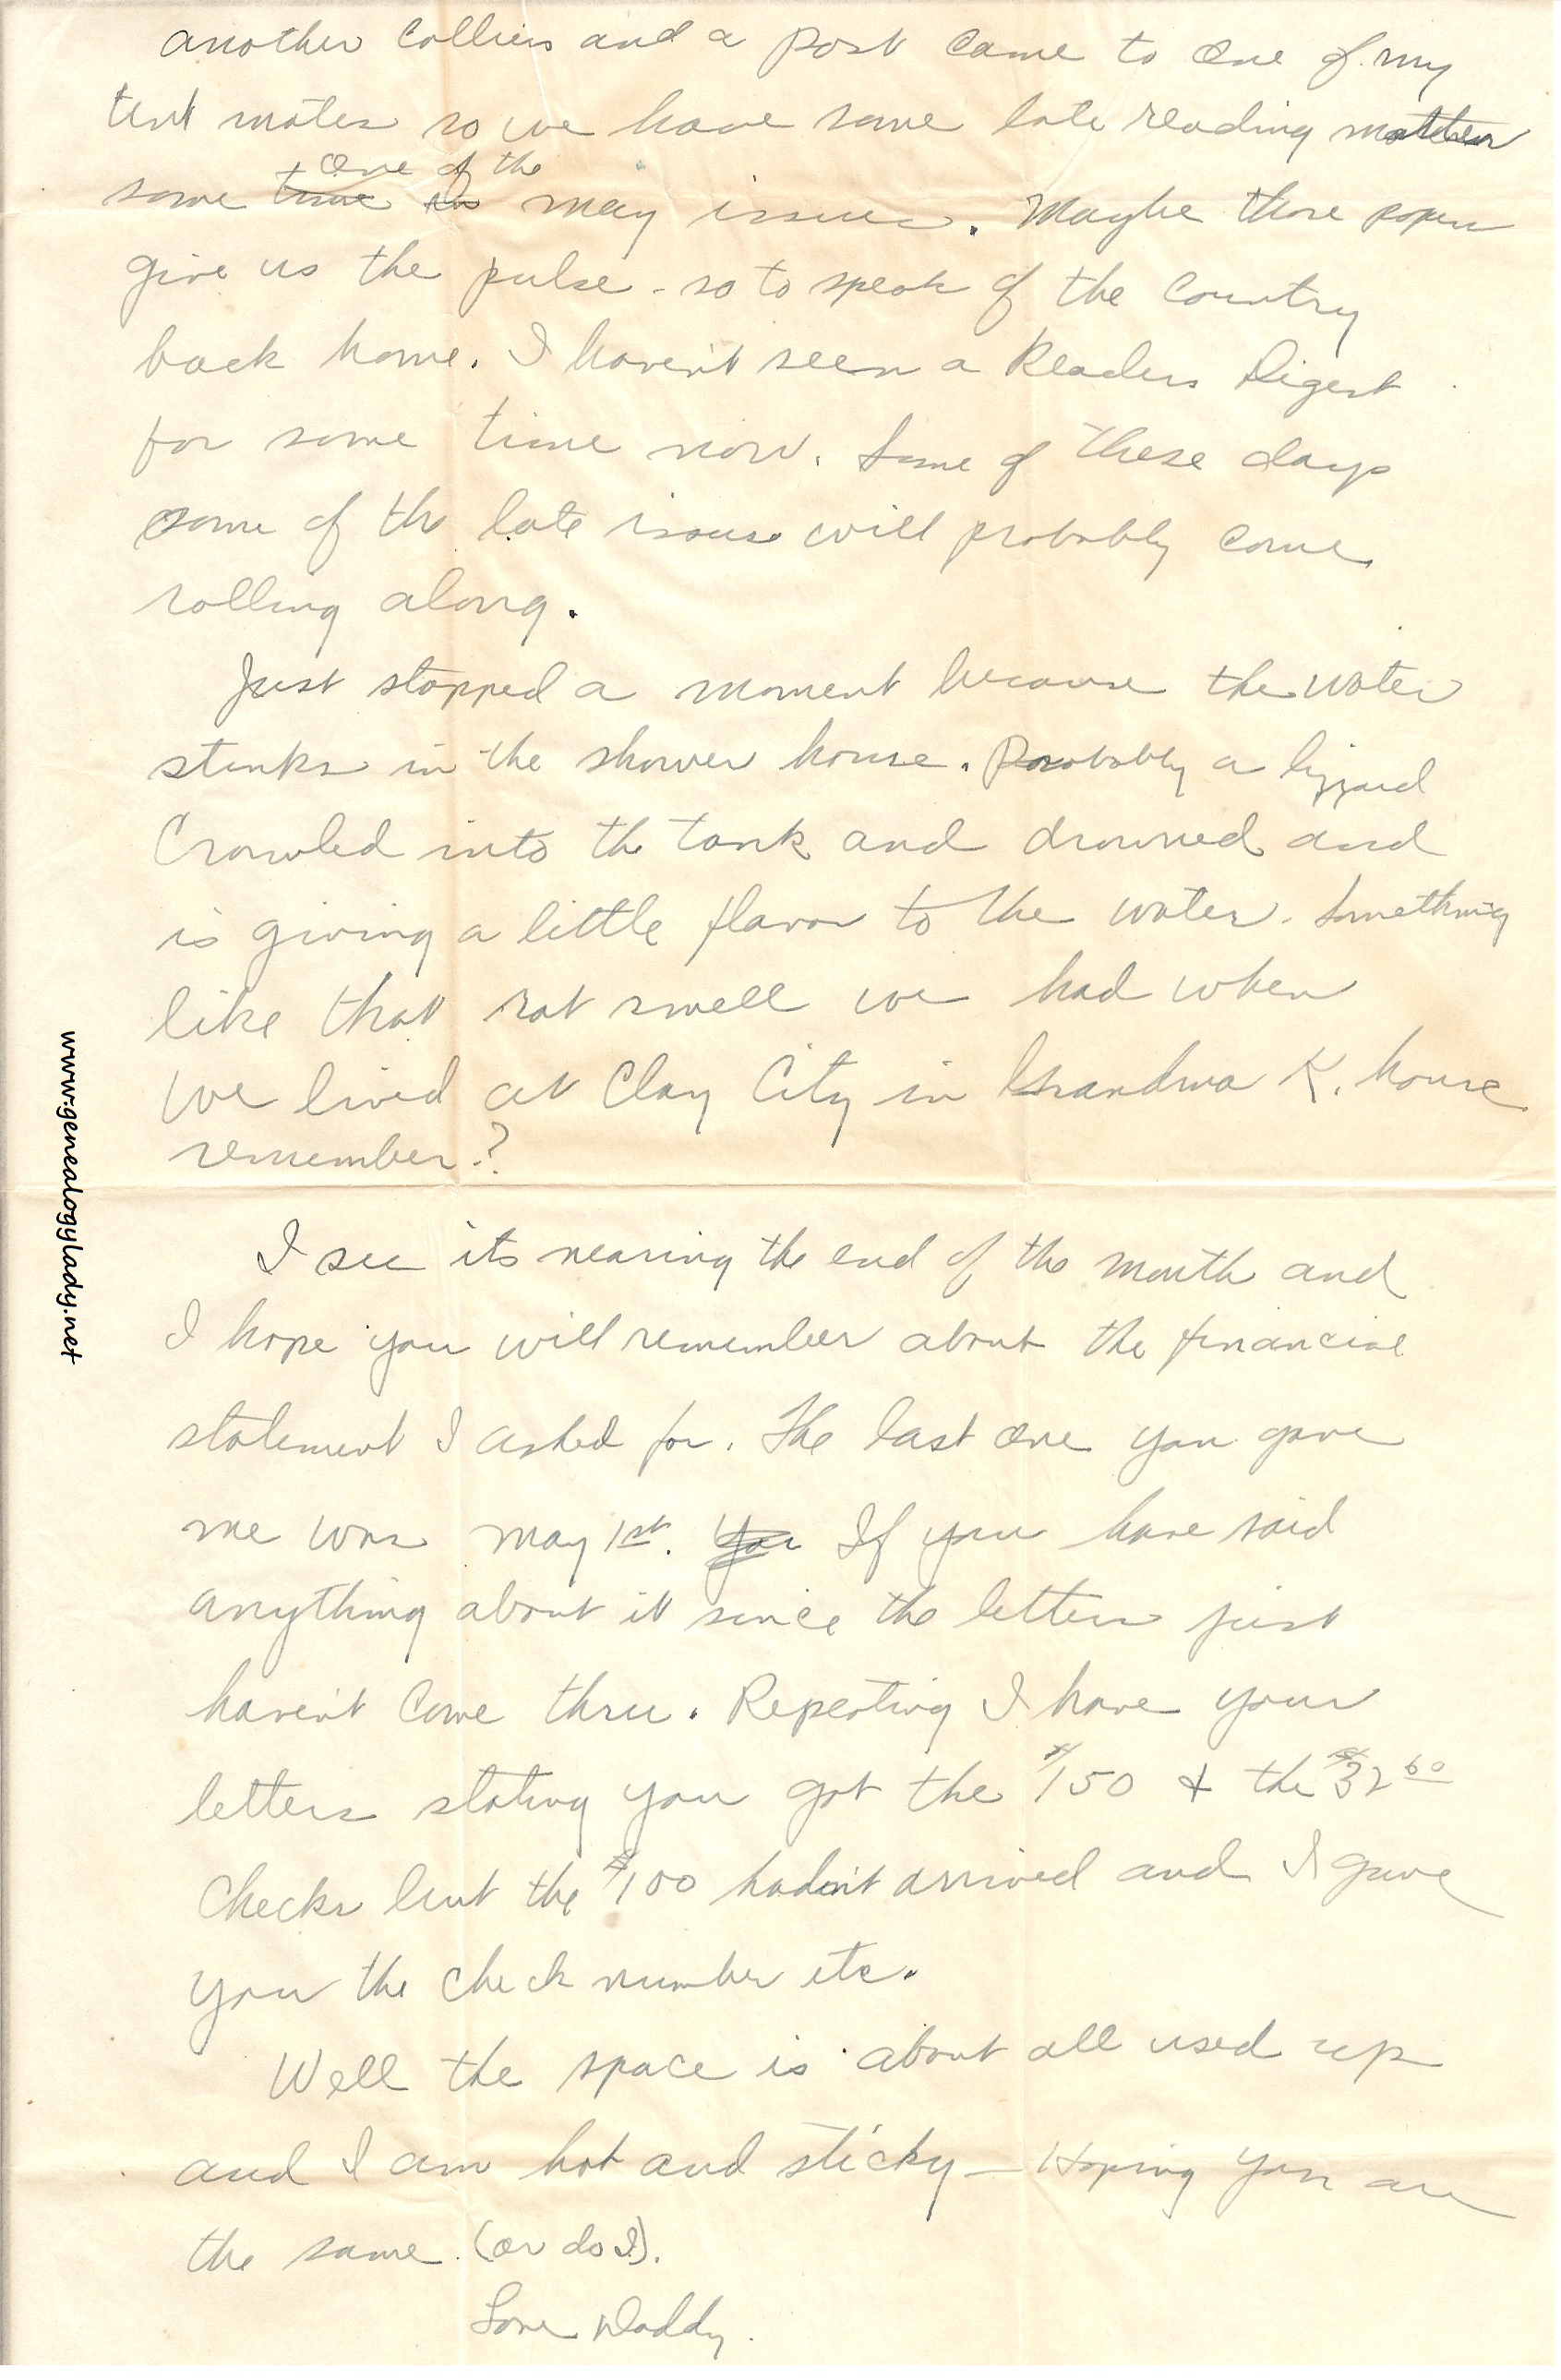 another Colliers and a post came to one of my
tent mates so we have some late reading matter
+ one of the
some time in may issues. Maybe those papers
give us the pulse - so to speak of the Country
back home. I haven't seen a Readers Digest
for some time now. Some of these days
some of the late issues will probably come
rolling along.
Just stopped a moment because the water
stinks in the shower house. Probably a lizzard
Crawled into the tank and drowned and
is giving a little flavor to the water. Something
like that rat smell we had when
we lived at Clay City in Grandma K. house
remember?
I see its nearing the end of the month and
I hope you will remember about the financial
statement I asked for. The last one you gave
me was may 1st. You If you have said
anything about it since the letters just
haven't come thru. Repeating I have your
letters stating you got the $150 + the $32 60
Checks but the $100 hadn't arrived and I gave
you the check number etc.
Well the space is about all used up
and I am hot and sticky - Hoping you are
the same. (or do I).
Love Daddy.
www.genealogylady.net